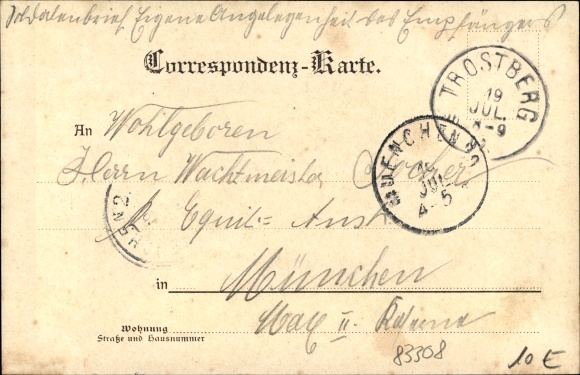 Soldatenbrief Eigene Angelegenheit des Empfängers
Correspondenz-Karte.
TROSTBERG
19
JUL.
8-9
An Wohlgeboren
Herrn Wachtmeister
MUENCHEN
19
JUL
4-5
Equit= Anst
in München
Max II
Wohnung
Straße und Hausnummer
83308
10 E